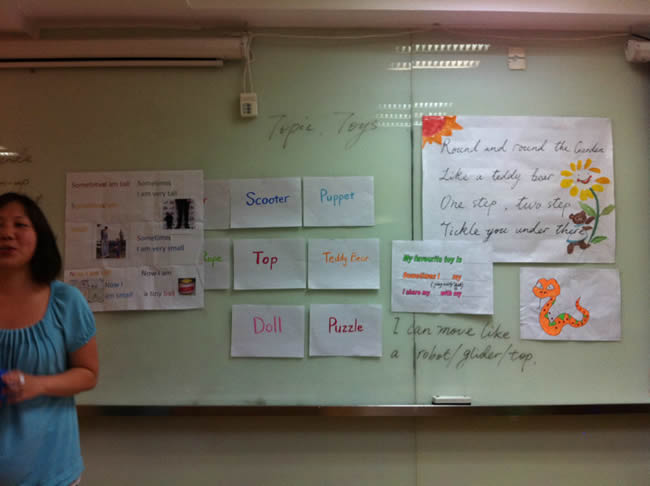 Topic: Toys
Sometimes I am tall
Sometimes
I am very tall
Sometimes
I am very small
Now I am tall
Now I
am small
Now I am
a tiny ball
Scooter
Puppet
Rope
Top
Teddy Bear
Doll
Puzzle
My favourite toy is
Sometimes I my
I share my with my
I can move like
a robot/glider/top.
Round and round the Garden
Like a teddy bear
One step, two step
Tickle you under there